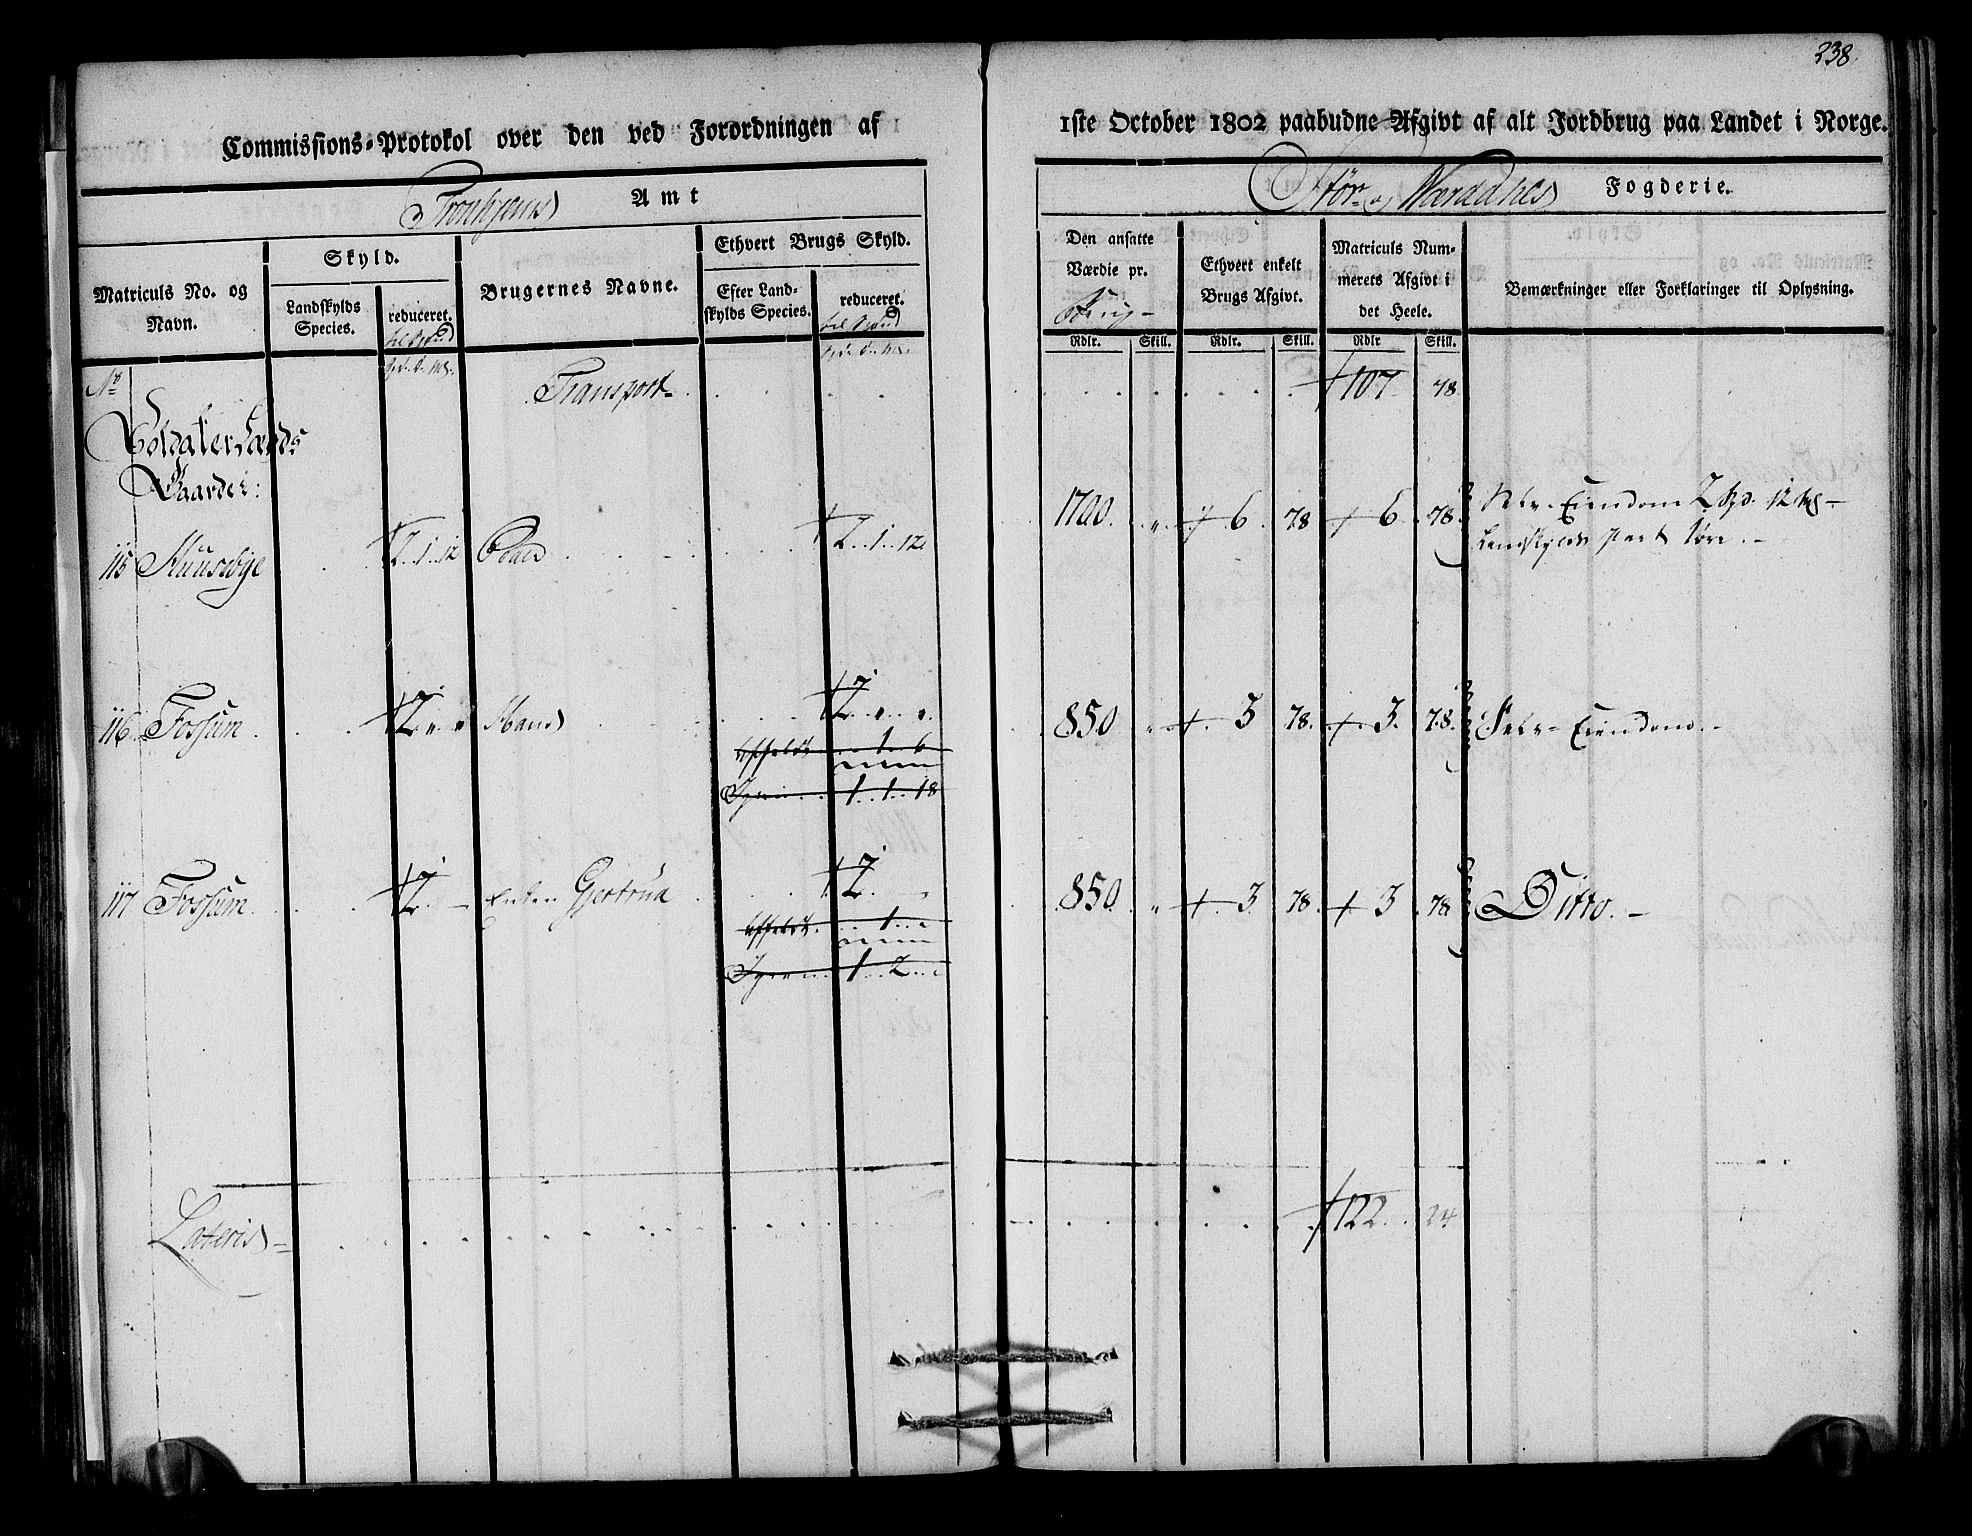 238.
Commissions-Protokol over den ved Forordningen af 1ste October 1802 paabudne Afgivt af alt Jordbrug paa Landet i Norge.
Tronhjems Amt
Stør og Værdahles Fogderie.
Matriculs No. og Navn.
Skyld.
Landskylds Species.
reduceret.
Brugernes Navne.
Ethvert Brugs Skyld.
Efter Landskylds Species.
reduceret.
Den ansatte Værdie pr. Brug
Ethvert enkelt Brugs Afgivt.
Matriculs Nummerets Afgivt i det Heele.
Bemærkninger eller Forklaringer til Oplysning.
Rdlr. Skill. Rdlr. Skill. Rdlr Skill.
No Transport 107 78
Soldater Lægds
Gaarder:
115 Muusøbye 2. 1. 12 Peder 2. 1. 12. 1700 " 6 78 6 78 Selv-Eiendom
116 Fossum 2 " " Hans 2. " " 850 " 3 78. 3. 78. Selv-Eiendom.
1. 6
1. 1. 18
117 Fossum 2. Enken Gjertrud 2. 850 " 3. 78. 3 78 Ditto.
1.
1. 2.
Lateris 122. 24